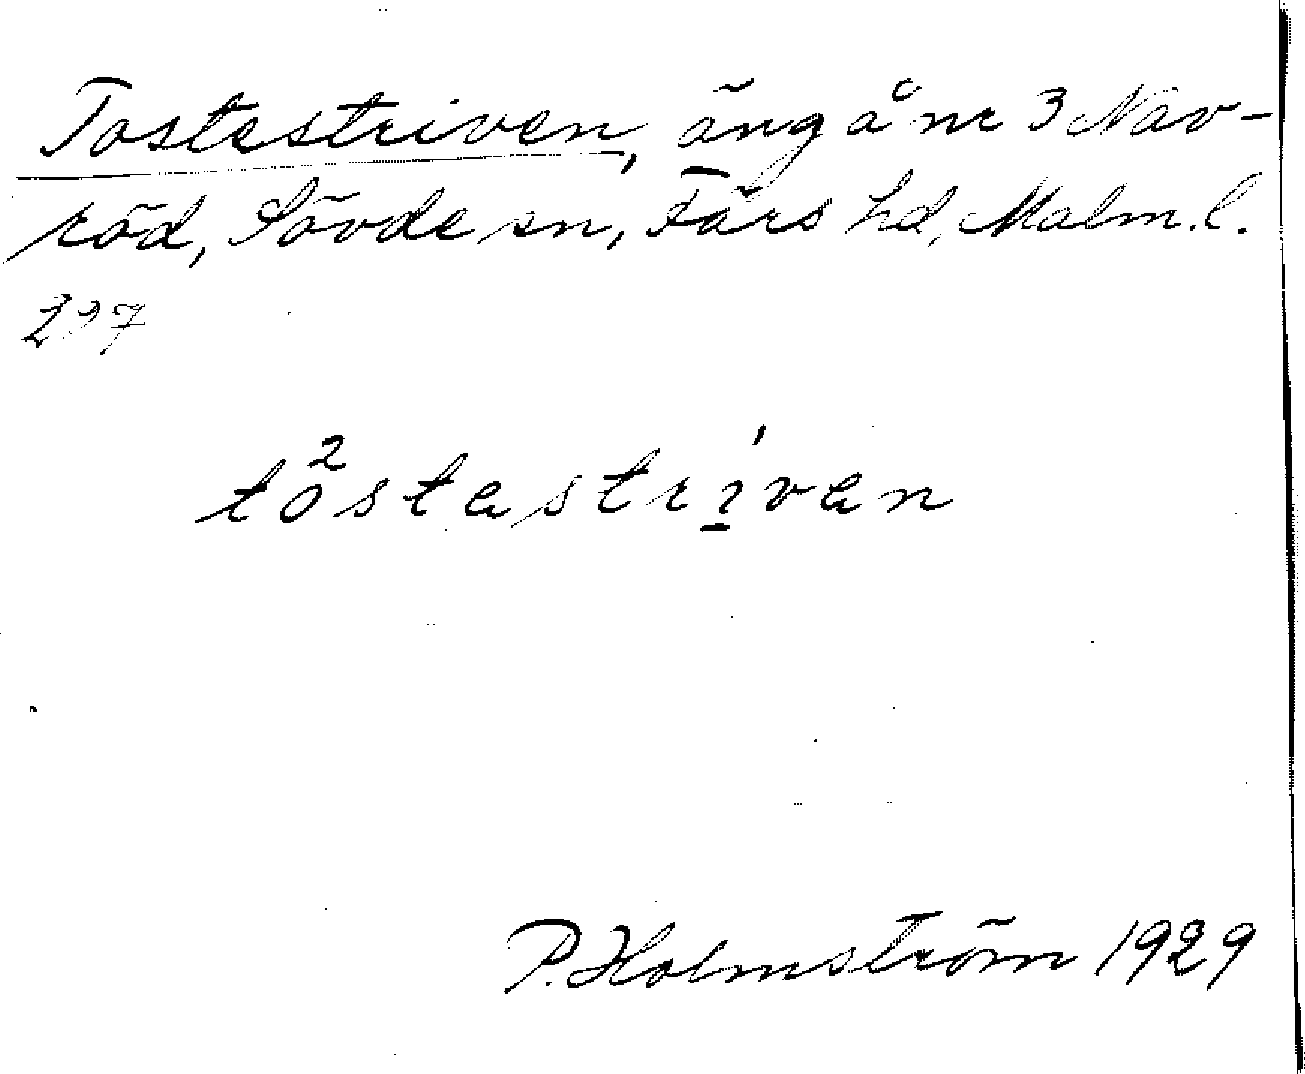 Tostestriven, äng å nr 3 Nav-
röd, Sövde sn, Färs hd, Malm. l.
297
tò²stastrı̱́van
P. Holmström 1929